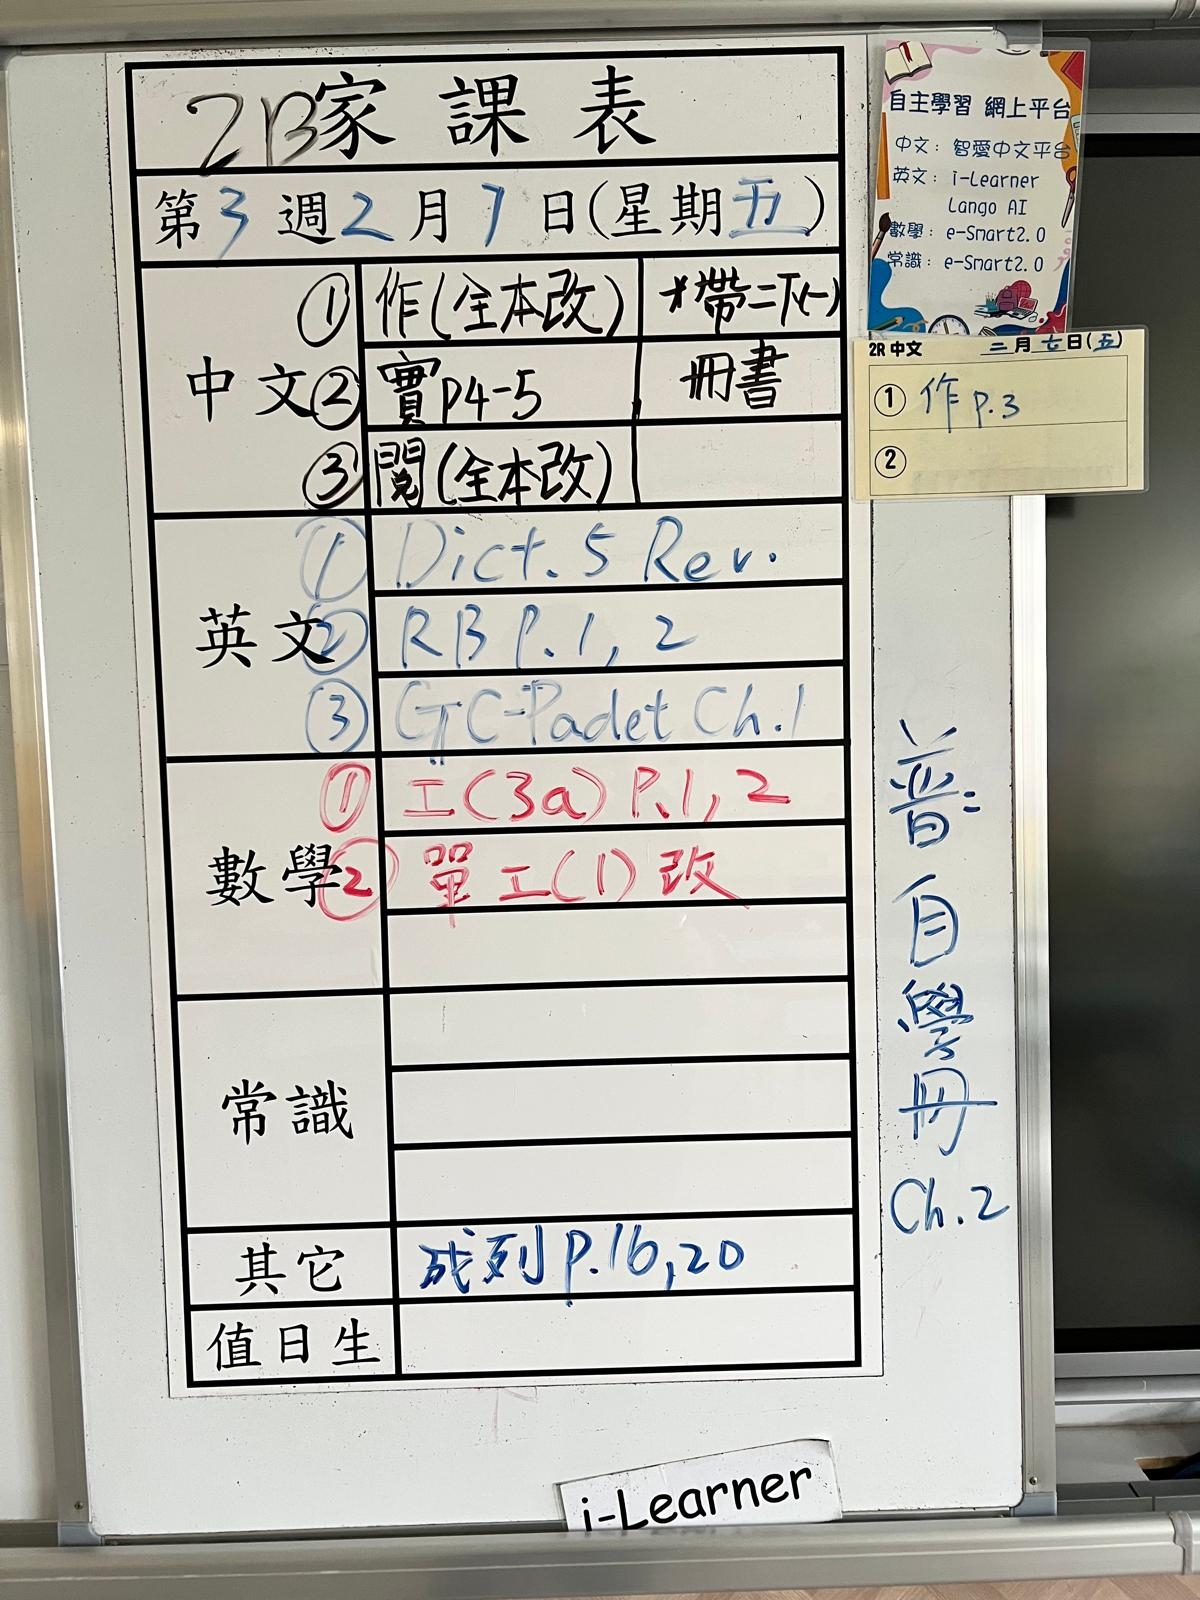 2B家課表
第3週2月7日(星期五)
中文
① 作(全本改) *帶二下(一)
② 實P4-5 冊書
③ 閱(全本改)
英文
① Dict. 5 Rev.
② RB P.1, 2
③ GC-Padet Ch.1
數學
① 工(3a) P.1, 2
② 單工(1)改
常識
其它
成列P.16,20
值日生
自主學習 網上平台
中文: 智愛中文平台
英文: i-Learner
Lango AI
數學: e-Smart2.0
常識: e-Smart2.0
2R 中文 二月七日(五)
① 作 P.3
②
普:
自學冊
Ch.2
i-Learner